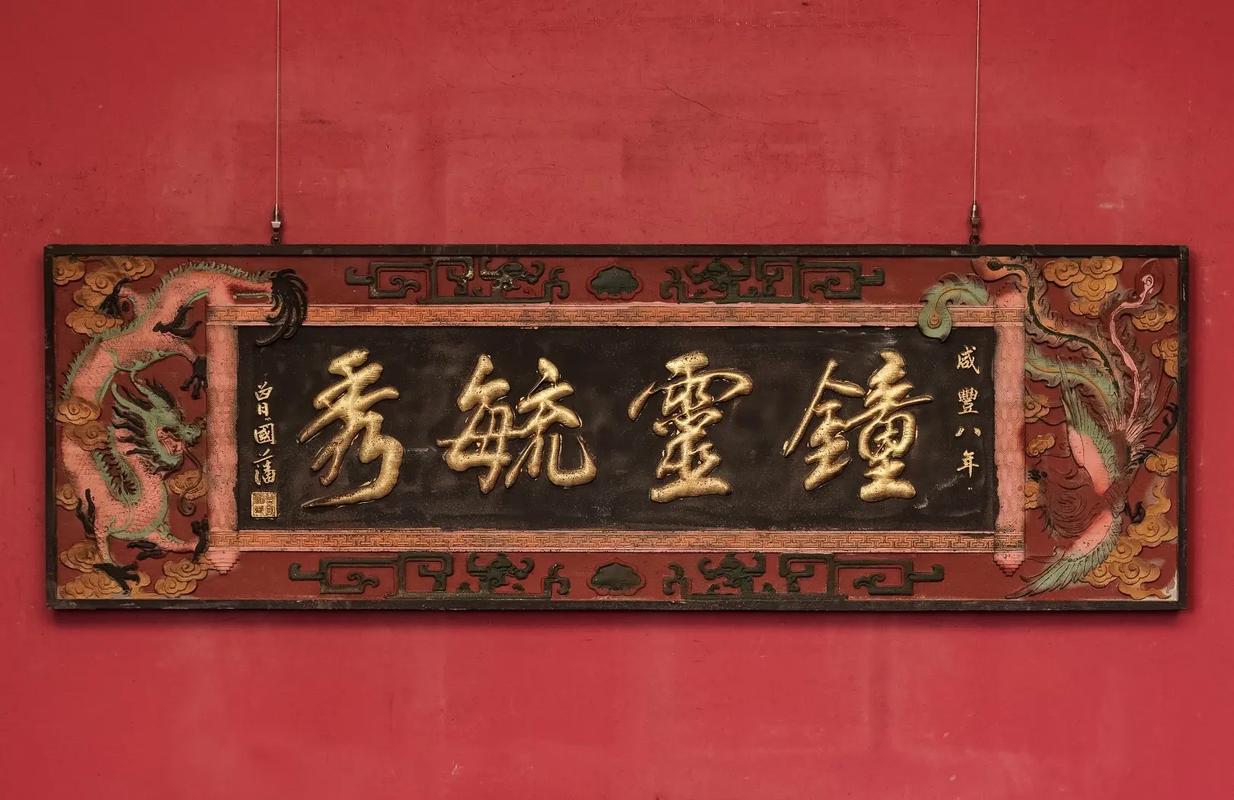 咸豐八年
鐘靈毓秀
曾國藩